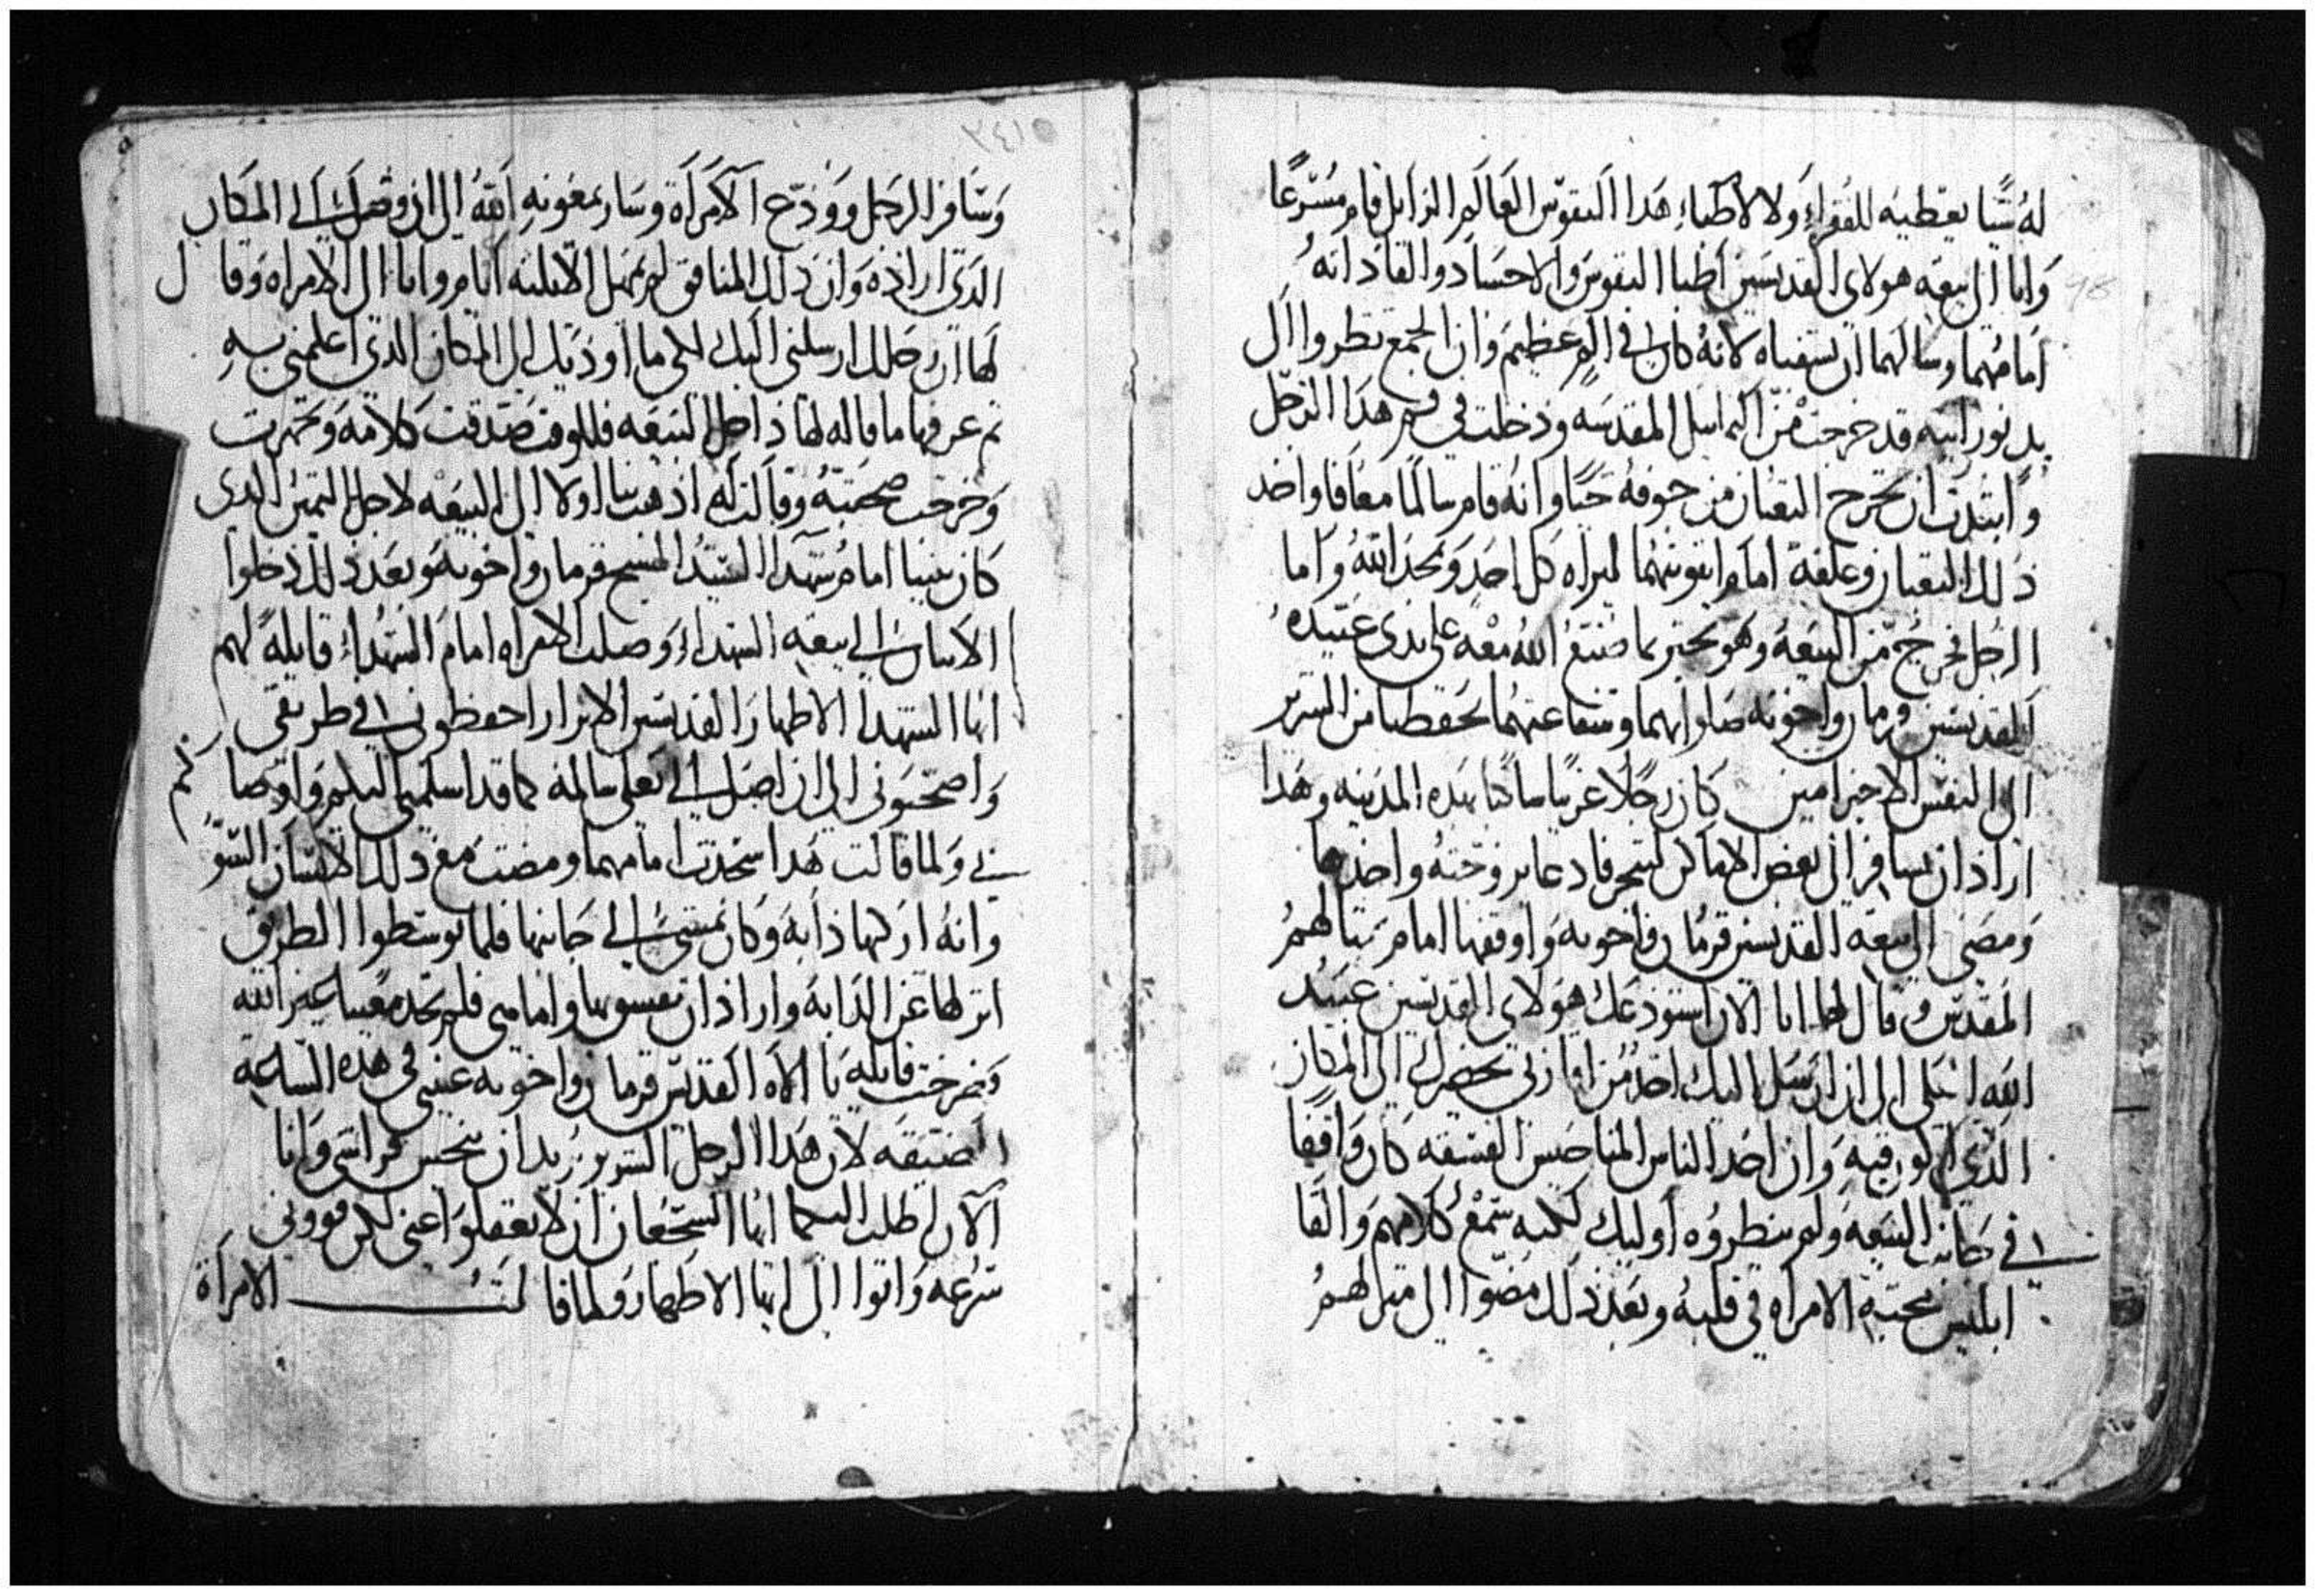 له شيا يعطيه للفقراء ولا لاطباء هدا النفوس العالم الزايل قام مسرعا
واتا الى بيعه هولاى القديسين اطبا النفوس والاجساد والقا داته
امامهما وسالهما ان يشفياه لانه كان في الم عظيم وان الجمع نظروا الى
يد نورانيه قد خرجت من الهياكل المقدسه ودخلت في فم هدا الرجل
وابتدت ان تخرج التعبان من جوفه حيا وانه قام سالما معافا واخد
دلك التعبان وعلقه امام ايقونتهما ليراه كل احد ويمجد الله واما
الرجل فخرج من البيعه وهو يخبر بما صنع الله معه على يدى عبيده
القديسين قزمان واخوته صلواتهما وشفاعتهما تحفظنا من الشرير
الى النفس الاخير امين كان رجلا غريبا ساكنا بهده المدينه وهدا
اراد ان يسافر الى بعض الاماكن ليتجر فادعا بزوجته واخدها
ومضى الى بيعة القديسين قزمان واخوته واوقفها امام تمتالهم
المقدس وقال لها انا الان استودعك هولاى القديسين عبيد
الله العلي الى ان ارسل اليك احد من اقاربي يحضرك الى المكان
الدي اكون فيه وان احد الناس المناحيس الفسقه كان واقفا
في جانب البيعه ولم ينظروه اوليك لكنه سمع كلامهم والقا
ابليس محبة الامراه في قلبه وبعد دلك مضوا الى منزلهم
٢٤١٥
وسافر الرجل وودع الامراة وسار بمعونه الله الى ان وصل الى المكان
الدى اراده وان دلك المنافق لم يمهل الا تلتة ايام واتا الى الامراه وقال
لها ان رجلك ارسلني اليك لكي ما اوديك الى المكان الدى اعلمني به
تم عرفها ما قاله لها داخل البيعه فللوقت صدقت كلامه وتجهزت
وخرجت صحبته وقالت له ادهب بنا اولا الى البيعه لاجل اليمين الدى
كان بيننا امام شهدا السيد المسيح قزمان واخوته وبعد دلك دخلوا
الاتنان الى بيعه الشهداء وصلت الامراه امام الشهداء قايلة لهم
ايها الشهدا الاطهار القديسين الابرار احفظوني في طريقي
واصحبوني الى ان اصل الى بعلي سالمه كما قد اسلمني اليكم واوصاكم
بي ولما قالت هدا سجدت امامهما ومضت مع دلك الانسان السوّ
وانه اركبها دابه وكان يمشي الى جانبها فلما توسطوا الطريق
انزلها عن الدابه واراد ان يفسق بها واما هي فلم تجد معينا غير الله
وصرخت قايله يا الاه القديس قزمان واخوته عينني في هده الساعة
الضيقه لان هدا الرجل الشرير يريد ان ينجس فراشي وانا
الان اطلب اليكما ايها الشجعان ان لا تغفلوا عني لكن قووني
سرعه واتوا الى ايها الاطهار ولما قالت الامرأة